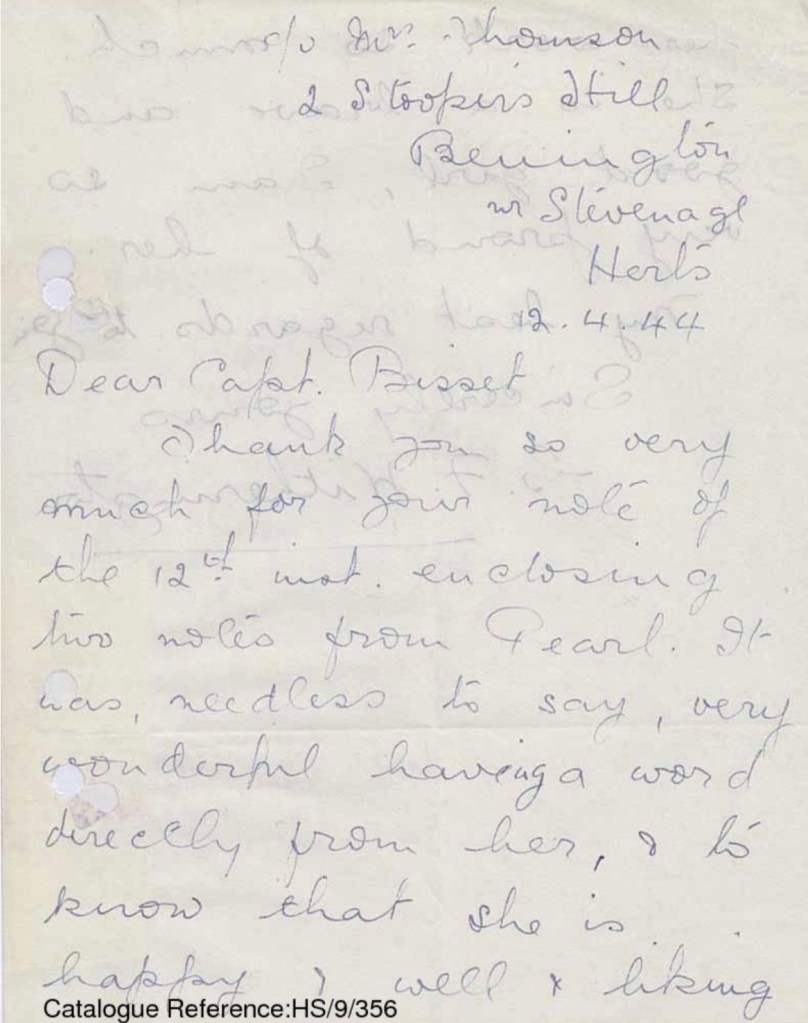 c/o Mrs. Thomson
2 Stoopers Hill
Benington
nr Stevenage
Herts
12.4.44
Dear Capt. Bisset
Thank you so very
much for your note of
the 12th inst. enclosing
two notes from Pearl. It
was, needless to say, very
wonderful having a word
directly from her, & to
know that she is
happy & well & liking
Catalogue Reference:HS/9/356